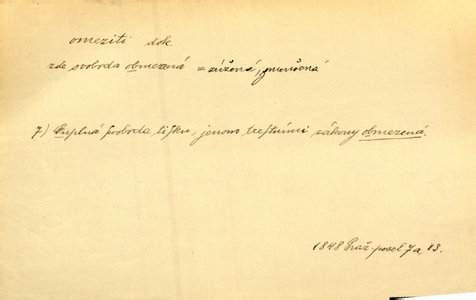 omeziti dok.
zde svoboda obmezená = zúžená,
7) Ouplná svoboda tisku, jenom trestními zákony obmezená.
1848 Praž. posel 7a 13.